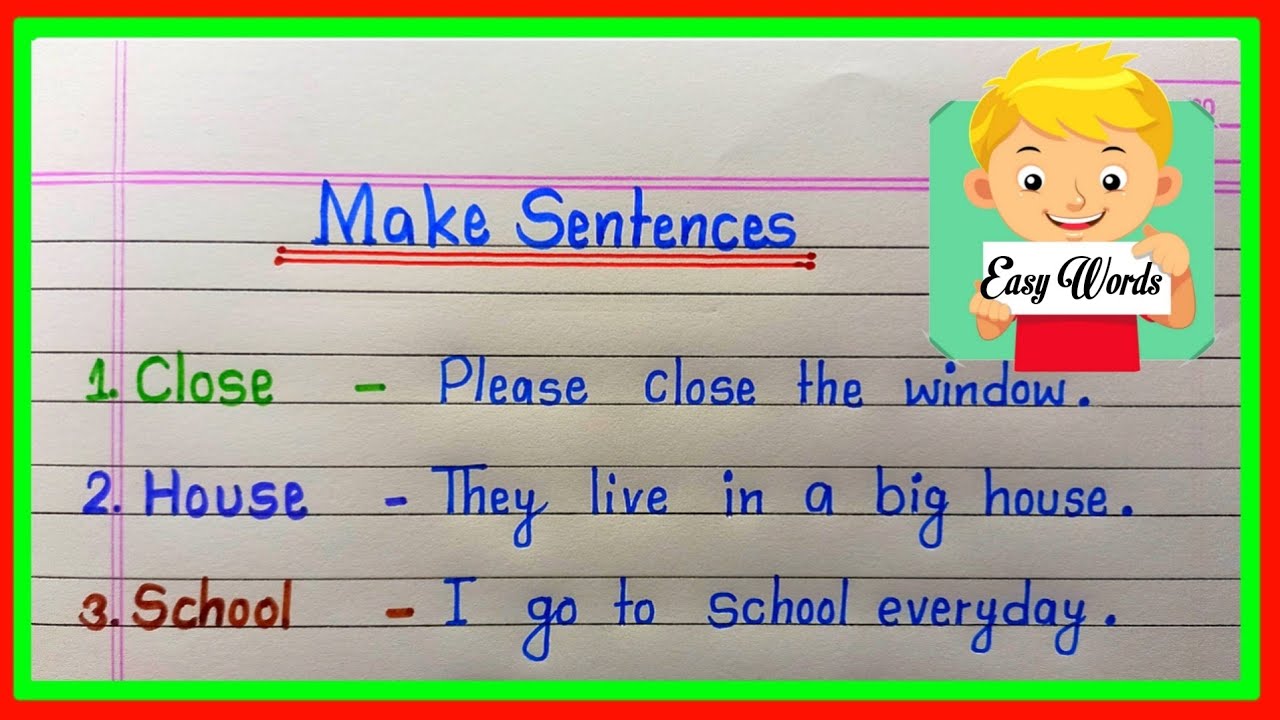 Make Sentences
Easy Words
1. Close - Please close the window.
2. House - They live in a big house.
3. School - I go to school everyday.